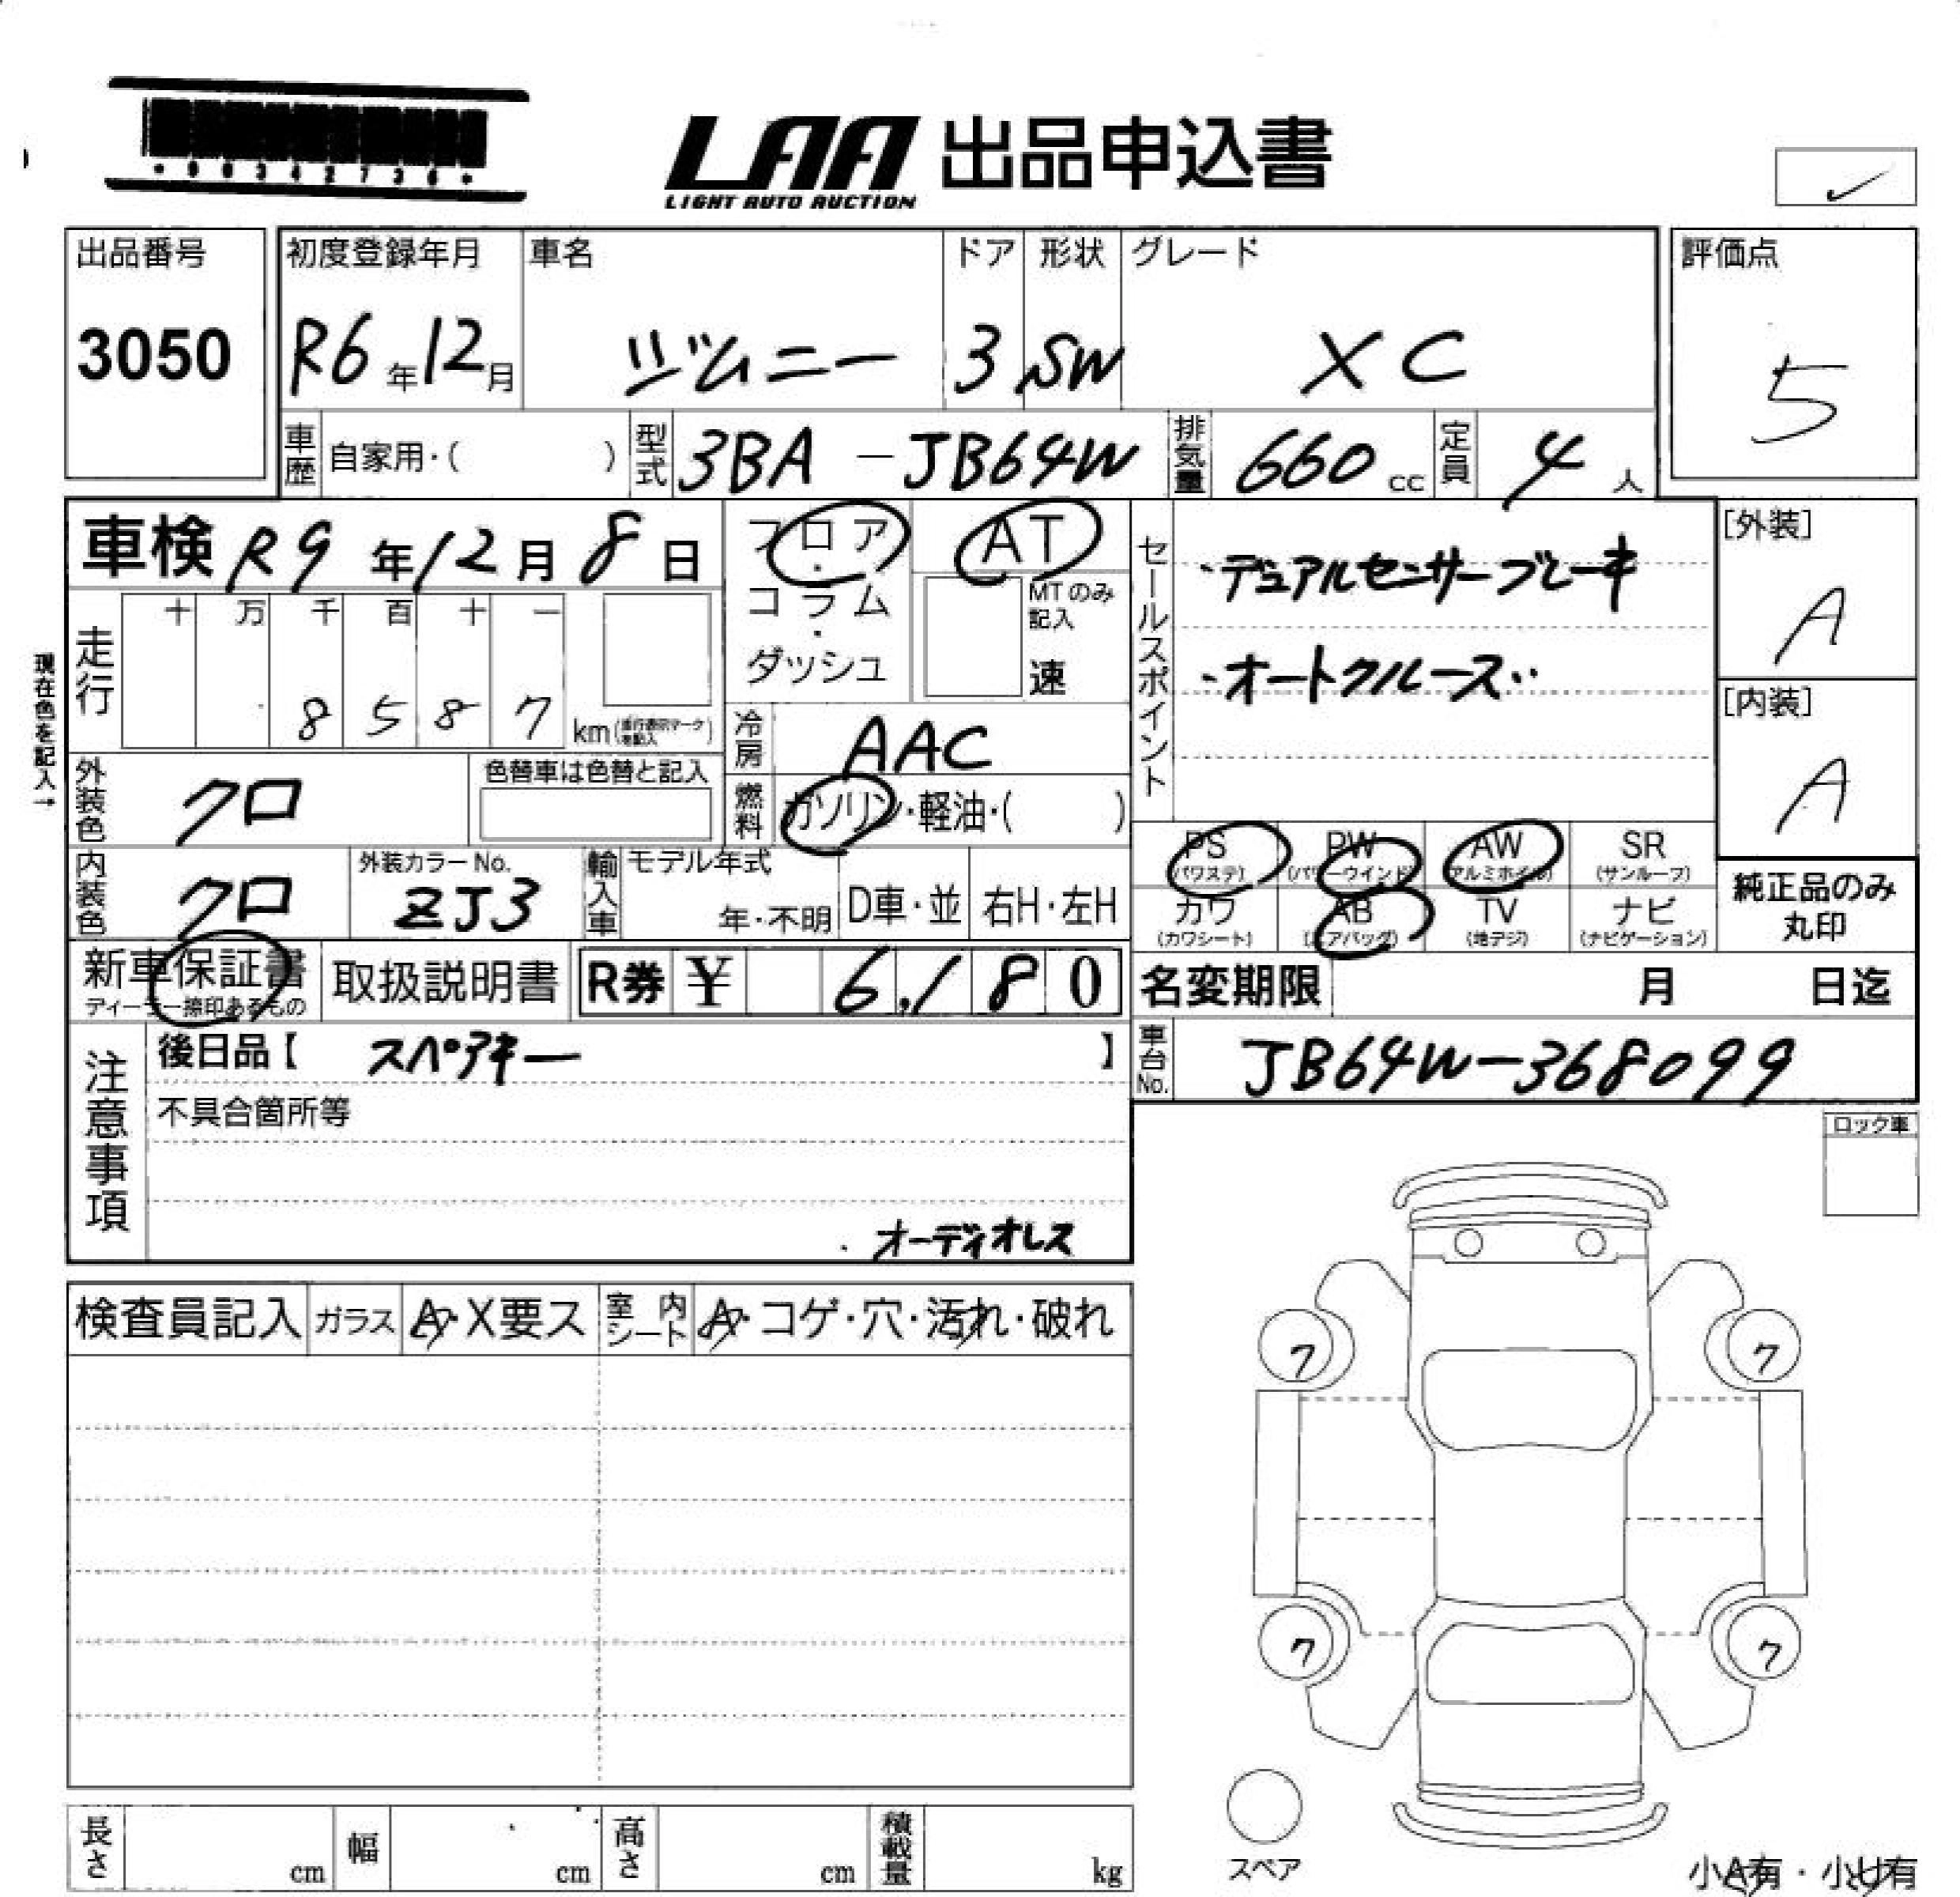 LAA 出品申込書
LIGHT AUTO AUCTION
出品番号 初度登録年月 車名 ドア 形状 グレード 評価点
3050 R6年12月 ジムニー 3 SW XC 5
車歴 自家用・( ) 型式 3BA-JB64W 排気量 660 cc 定員 4 人
車検 R9年12月8日
フロア・コラム・ダッシュ
AT
MTのみ記入
速
セールスポイント
・デュアルセンサーブレーキ
・オートクルーズ
[外装]
A
[内装]
A
現在色を記入→
走行 十 万 千 百 十 一
8 5 8 7 km
冷房 AAC
外装色 クロ 色替車は色替と記入
燃料 ガソリン・軽油・( )
内装色 クロ 外装カラーNo. ZJ3
輸入車 モデル年式 年・不明 D車・並 右H・左H
PS (パワステ) PW (パワーウインド) AW (アルミホイル) SR (サンルーフ)
カワ (カワシート) AB (エアバッグ) TV (地デジ) ナビ (ナビゲーション)
純正品のみ丸印
新車保証書 取扱説明書 R券 ¥ 6,180
名変期限 月 日迄
車台No. JB64W-368099
注意事項
後日品【 スペアキー 】
不具合箇所等
・オーディオレス
ロック車
検査員記入 ガラス A・X要ス 室内シート A・コゲ・穴・汚れ・破れ
ク ク
ク ク
スペア
長さ cm 幅 cm 高さ cm 積載量 kg
小A有・小U有